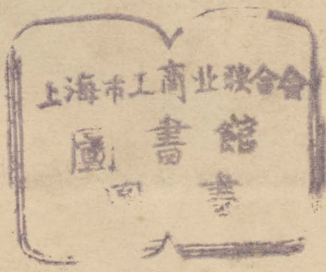 上海市工商业联合會
圖書館
書